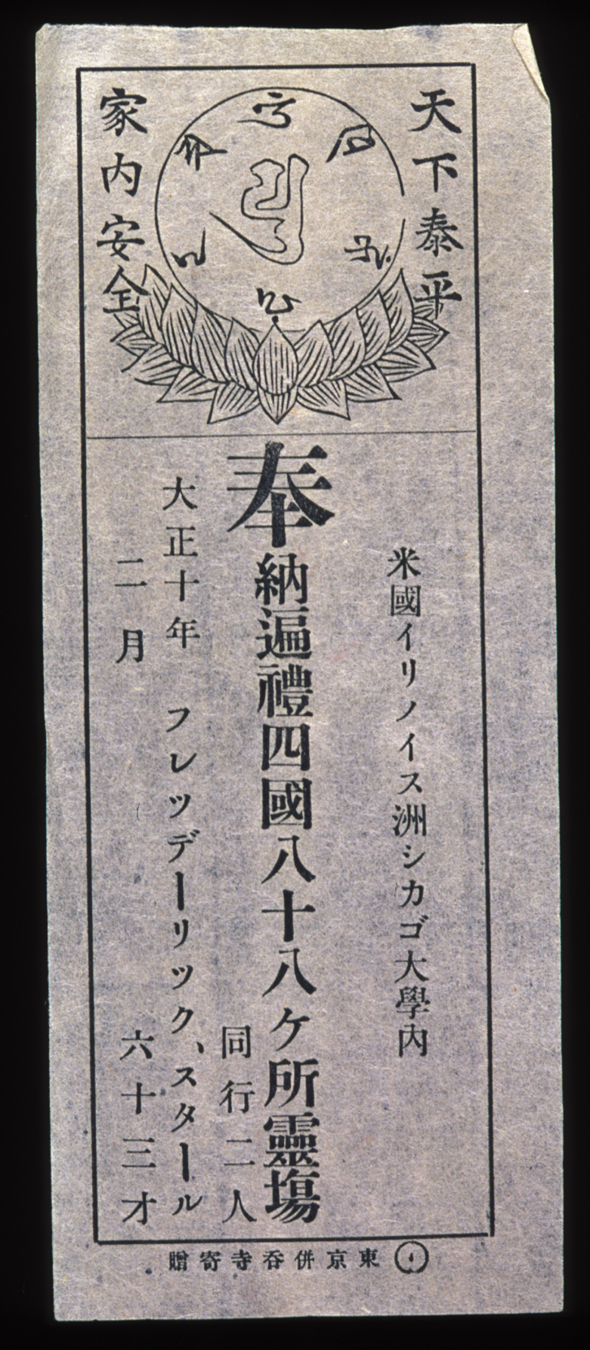 天下泰平
家内安全
米國イリノイス洲シカゴ大學內
奉納遍禮四國八十八ケ所靈塲
同行二人
大正十年
二月
フレッデーリック、スタール
六十三才
東京併呑寺寄贈